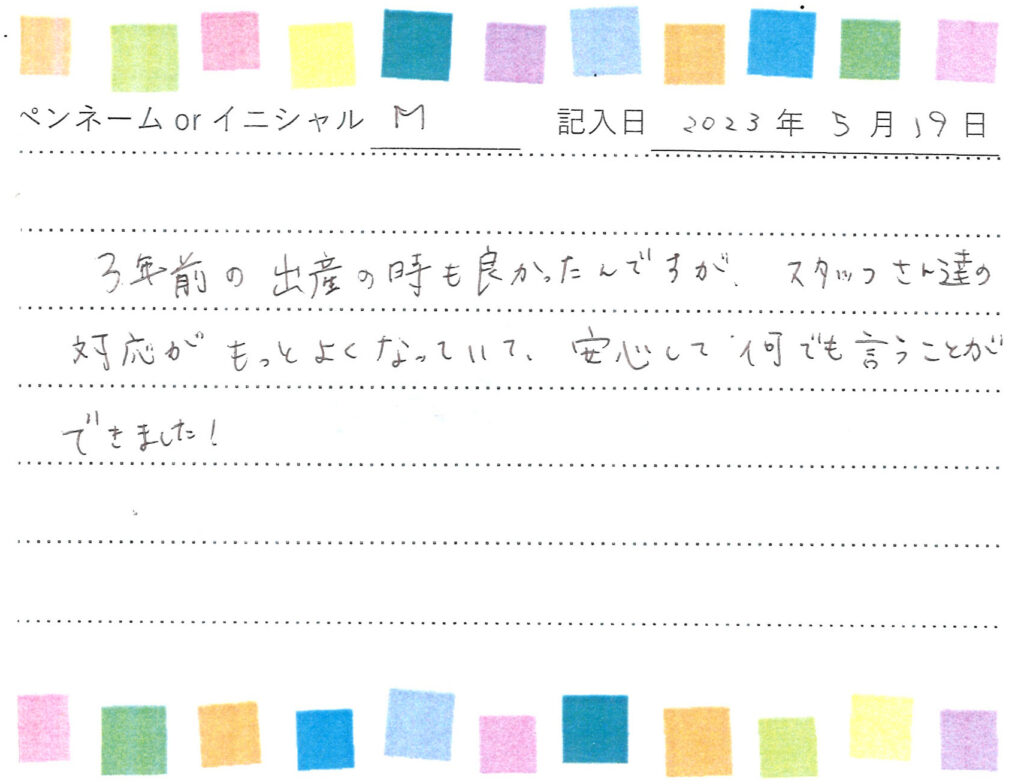 ペンネーム or イニシャル M 記入日 2023年 5月 19日
3年前の出産の時も良かったんですが、スタッフさん達の
対応がもっとよくなっていて、安心して何でも言うことが
できました!